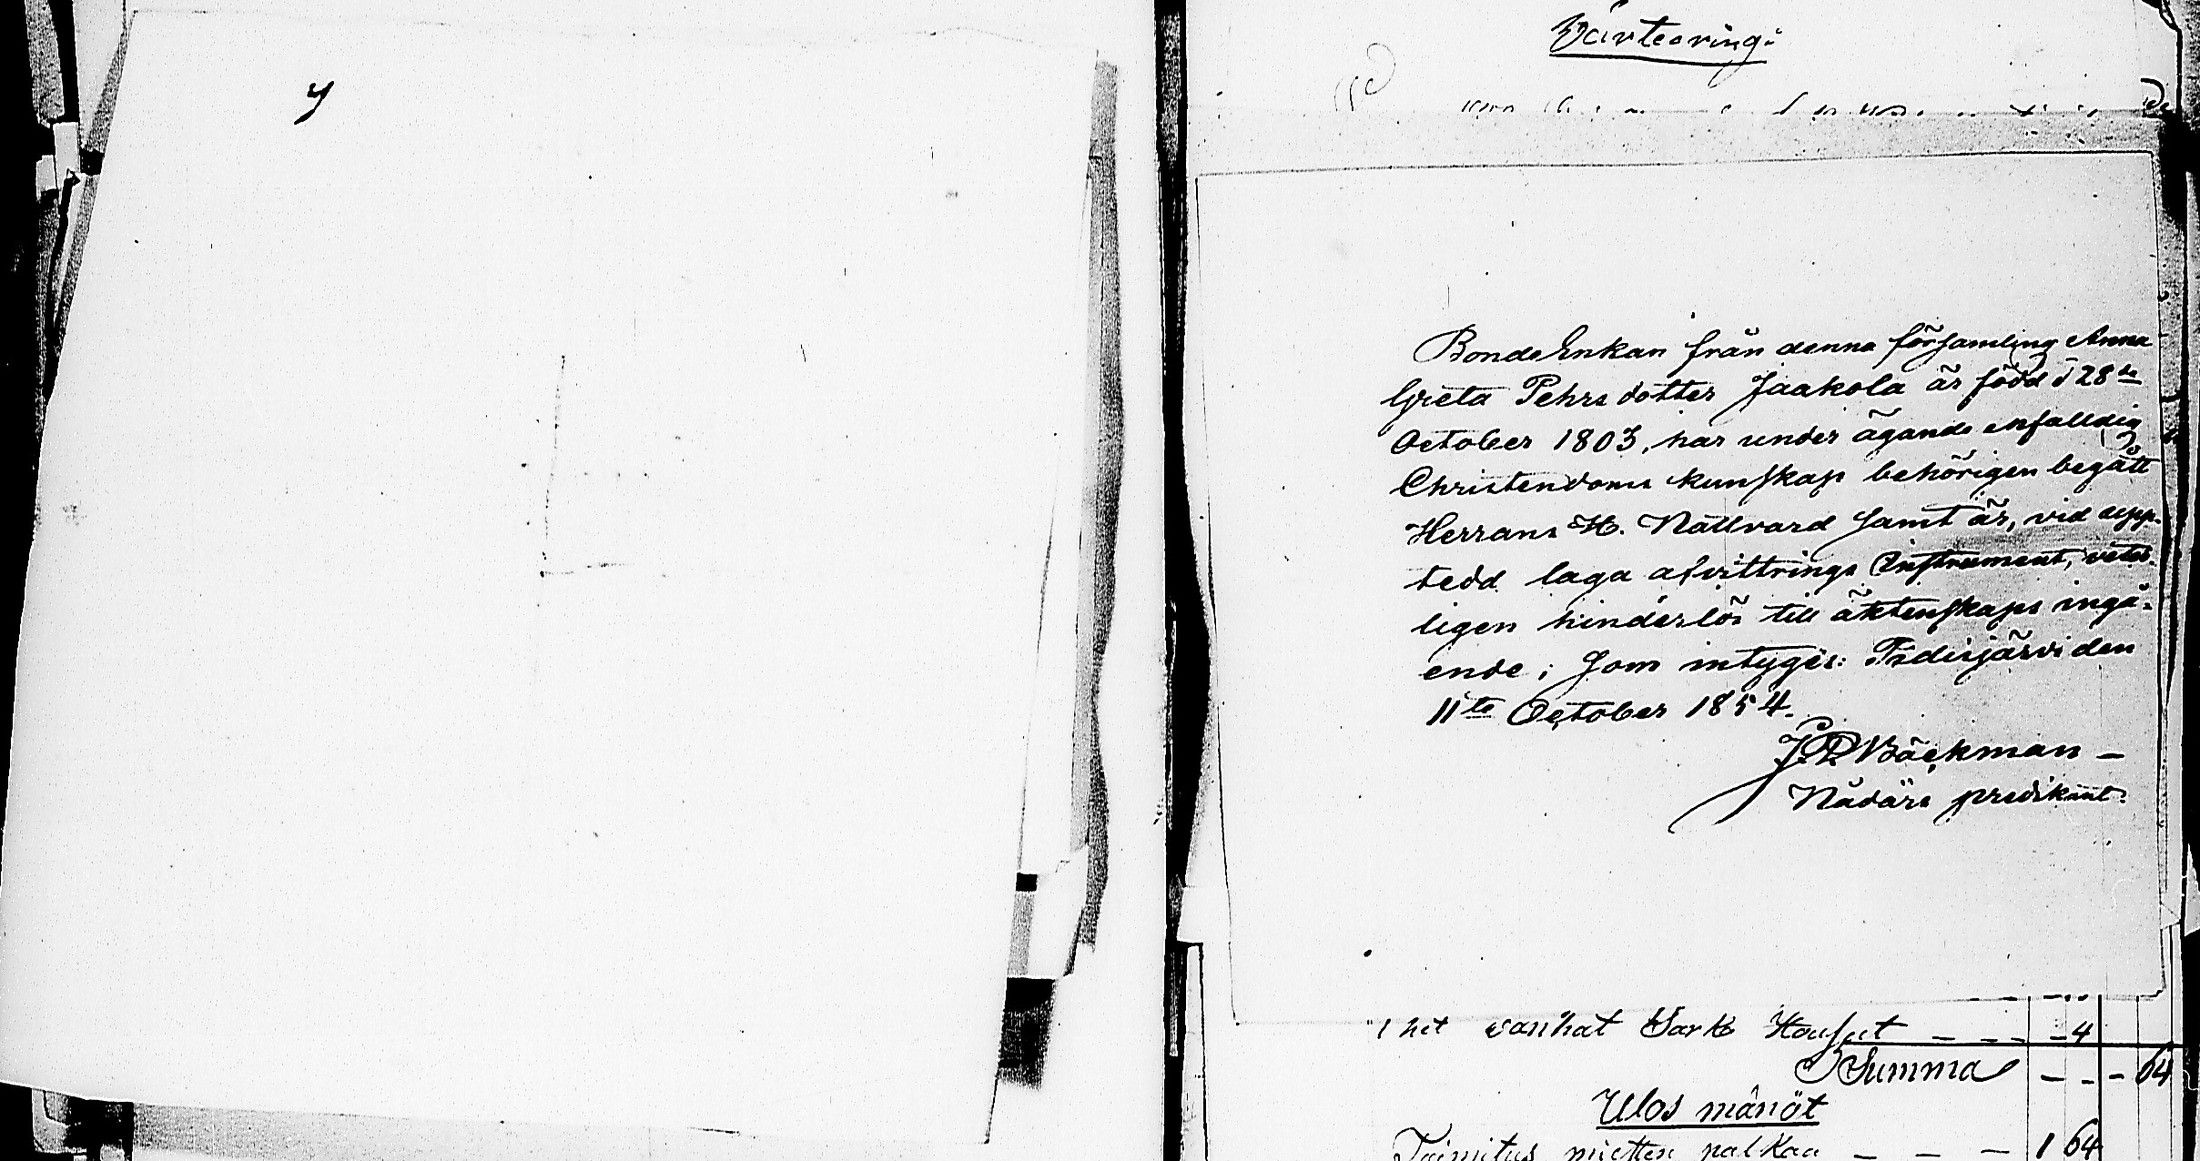 y
Värtearing:
BondeEnkan från denna församling Anna
Greta Pehrs dotter Jaakola är född d 28de
October 1803, har under ägande enfalldig
Christendoms kunskap behörigen begått
Herrans H. Nattvard samt är, vid upp-
tedd laga afvittrings Instrument, veter-
ligen hinderlös till äktenskaps ingå-
ende; som intygas: Pidisjärvi den
11te October 1854.
J.P. Bäckman –
Nådårs predikant.
1 het vanhat Sark Housut – – – – 4
Summa – – – 64
Ulos mänöt
Toimitus miesten palkaa – – – 1 64